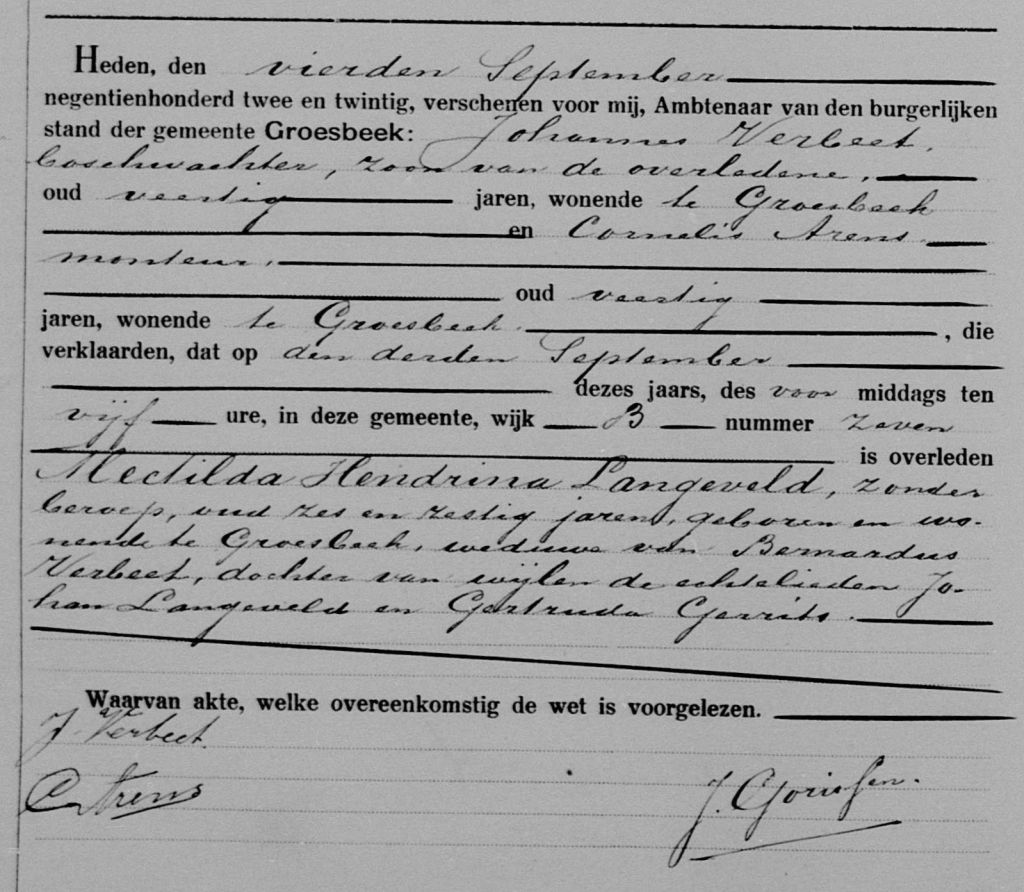 Heden, den vierden September
negentienhonderd twee en twintig, verschenen voor mij, Ambtenaar van den burgerlijken
stand der gemeente Groesbeek: Johannes Verbeet,
boschwachter, zoon van de overledene,
oud veertig jaren, wonende te Groesbeek
en Cornelis Arens
monteur,
oud veertig
jaren, wonende te Groesbeek, die
verklaarden, dat op den derden September
dezes jaars, des voor middags ten
vijf ure, in deze gemeente, wijk B nummer zeven
is overleden
Mectilda Hendrina Langeveld, zonder
beroep, oud zes en zestig jaren, geboren en wo-
nende te Groesbeek, weduwe van Bernardus
Verbeet, dochter van wijlen de echtelieden Jo-
han Langeveld en Gertruda Gerrits.
Waarvan akte, welke overeenkomstig de wet is voorgelezen.
J. Verbeet.
C Arens
J. Gorissen.